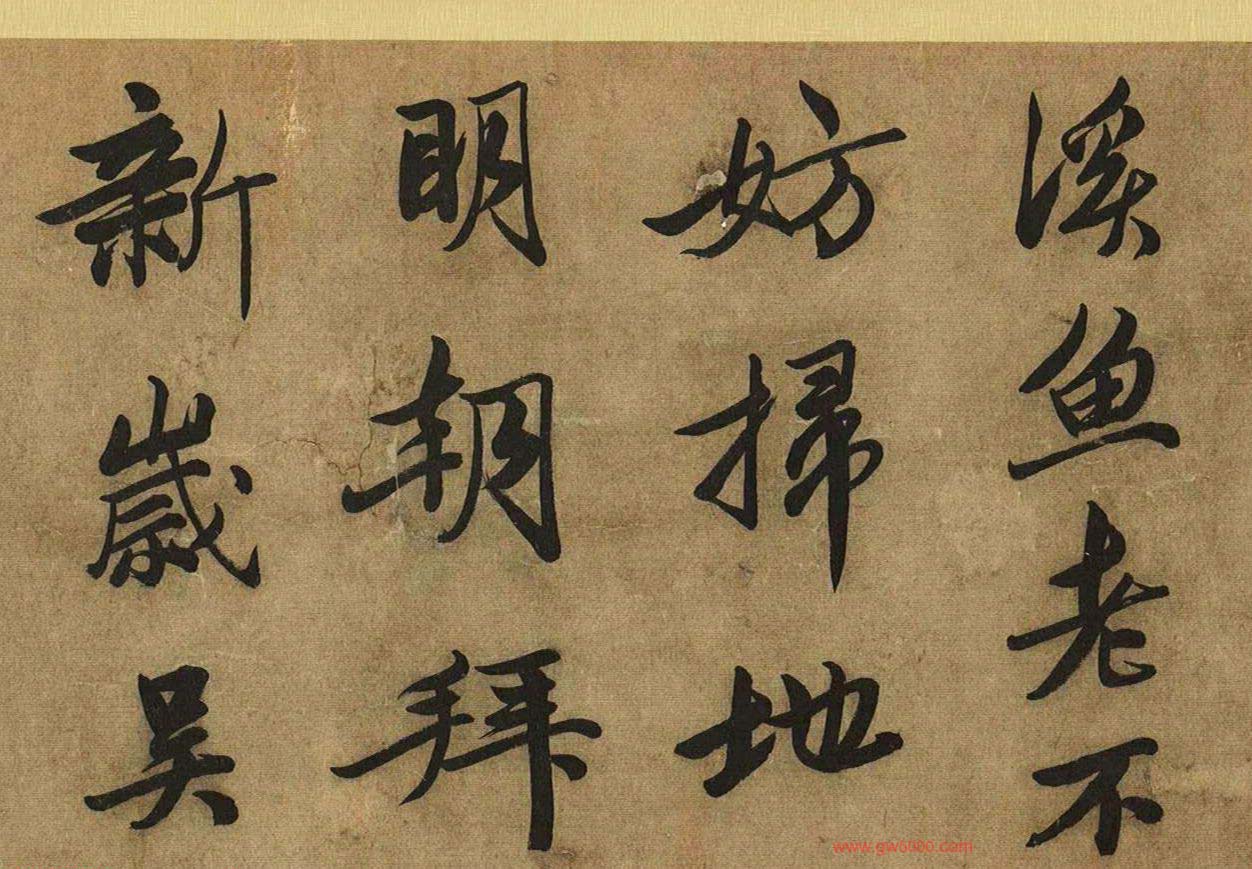 溪魚老不
妨掃地
明朝拜
新歲吴
www.gw5000.com